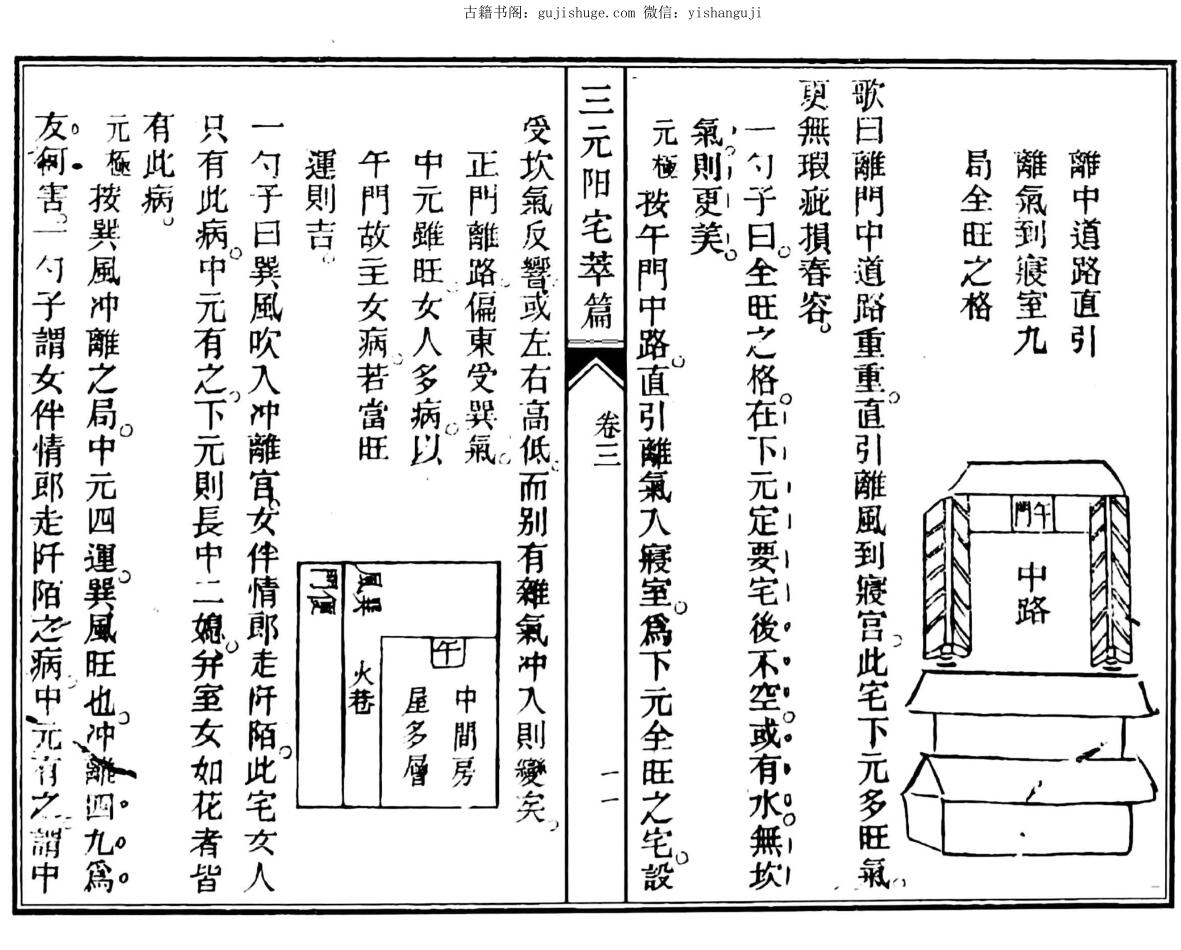 古籍书阁：gujishuge.com 微信：yishanguji
離中道路直引
離氣到寢室九
局全旺之格
午門
中路
歌曰離門中道路重重直引離風到寢宮。此宅下元多旺氣。
更無瑕疵損春容。
一勺子曰。全旺之格。在下元定要宅後不空。或有水無坎
氣則更美。
元極 按午門中路。直引離氣入寢室。爲下元全旺之宅。設
三元阳宅萃篇
卷三
一一
受坎氣反響。或左右高低。而别有雜氣冲入則變矣。
正門離路偏東受巽氣。
中元雖旺女人多病。以
午門故主女病。若當旺
運則吉。
便門
巽風
火巷
午
中間房
屋多層
一勺子曰巽風吹入冲離宫。女伴情郎走阡陌。此宅女人
只有此病。中元有之。下元則長中二媳。弁室女如花者皆
有此病。
元極 按巽風冲離之局。中元四運。巽風旺也。冲離四九。爲。
友。何害。一勺子謂女伴情郎走阡陌之病。中元有之。謂中